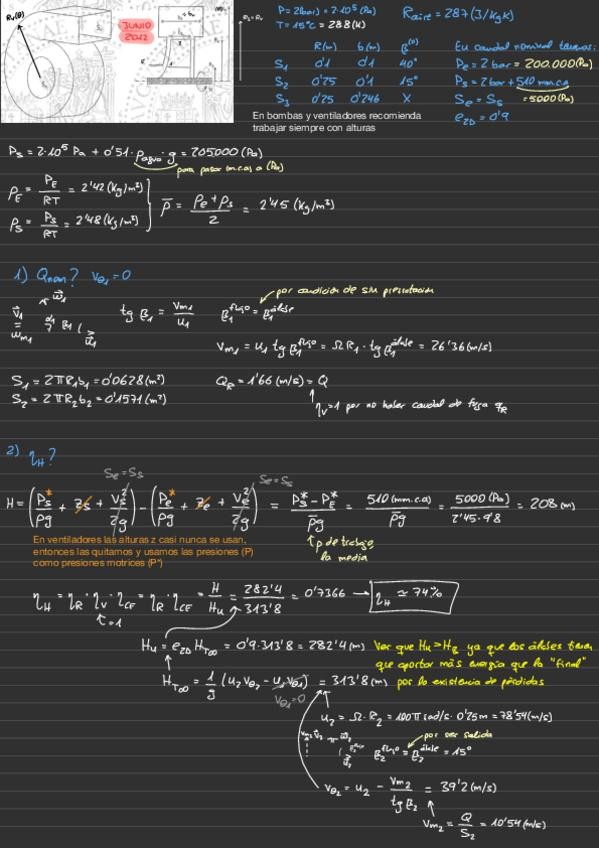 JUNIO
2012
P = 2(bar) = 2·10⁵ (Pa)
T = 15°C = 288(K)
Raire = 287 (J/KgK)
R(m) b(m) β(º)
S₁ 0'1 0'1 40°
S₂ 0'25 0'1 15°
S₃ 0'25 0'246 X
En caudal nominal tenemos:
Pe = 2 bar = 200.000 (Pa)
Ps = 2 bar + 510 mm.c.a
= 5000 (Pa)
Se = Ss
e2D = 0'9
En bombas y ventiladores recomienda
trabajar siempre con alturas
Ps = 2·10⁵ Pa + 0'51·ρagua·g = 205000 (Pa)
para pasar (m.c.a) a (Pa)
ρE = PE/RT = 2'42 (Kg/m³)
ρS = PS/RT = 2'48 (Kg/m³)
ρ̄ = (ρe + ρs)/2 = 2'45 (Kg/m³)
1) Qnom? vθ1 = 0
tg β₁ = Vm1/u₁
β₁ flujo = β₁ álabe
por condición de sin prerrotación
Vm1 = u₁ tg β₁ flujo = Ω R₁ · tg β₁ álabe = 26'36 (m/s)
S₁ = 2πR₁b₁ = 0'0628 (m²)
S₂ = 2πR₂b₂ = 0'1571 (m²)
QR = 1'66 (m/s) = Q
ηv = 1 por no haber caudal de fuga qR
2) ηH?
Se = Ss
Se = Ss
H = (Ps*/ρg + zs + Vs²/2g) - (Pe*/ρg + ze + Ve²/2g) = (Ps* - PE*)/ρ̄g = 510 (mm.c.a)/ρ̄g = 5000 (Pa)/2'45·9'8 = 208 (m)
ρ de trabajo,
la media
En ventiladores las alturas z casi nunca se usan,
entonces las quitamos y usamos las presiones (P)
como presiones motrices (P*)
ηH = ηR · ηV · ηCF = ηR · ηCF = H/Hu = 282'4/313'8 = 0'7366 → ηH ≃ 74%
= 1
Hu = e2D HT∞ = 0'9·313'8 = 282'4 (m)
Ver que Hu > HR ya que los álabes tienen
que aportar más energía que la "final"
por la existencia de pérdidas
HT∞ = 1/g (u₂ vθ2 - u₁ vθ1) = 313'8 (m)
vθ1 = 0
u₂ = Ω · R₂ = 100π rad/s · 0'25 m = 78'54 (m/s)
por ser salida
β₂ flujo = β₂ álabe = 15°
vθ2 = u₂ - Vm2/tg β₂ = 39'2 (m/s)
Vm2 = Q/S₂ = 10'54 (m/s)